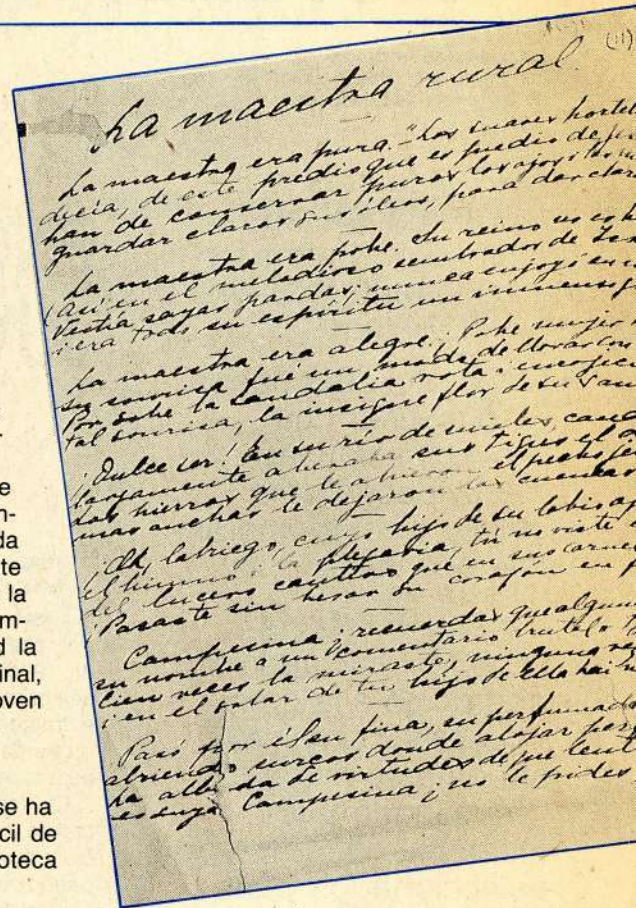 e
n-
da
te
la
m-
d la
inal,
oven
se ha
cil de
oteca
(11)
La maestra rural
La maestra era pura. "Los suaves hortel
decía, de este predio que es predio de je
han de conservar puros los ojos i las m
guardar claros sus óleos, para dar clara
La maestra era pobre. Su reino no es h
(Así en el melodioso sembrador de Is
Vestía sayas pardas; nunca enjoyó su m
i era todo su espíritu un inmenso
La maestra era alegre. ¡Pobre mujer
su sonrisa fué un modo de llorar con
Por sobre la sandalia rota i
tal sonrisa, la insigne flor de su san
¡Dulce ser! En su río de mieles, cau
largamente abrevaba sus tigres el
Los hierros que le abrieron el pecho ge
mas anchas le dejaron las cuencas
¡Oh, labriego, cuyo hijo de su labio ap
el himno i la plegaria, tú no viste
del lucero cautivo que en sus carnes
¡Pasaste sin besar su corazón en f
Campesina ¿recuerdas que alguna
su nombre a un comentario brutal o
Cien veces la miraste, ninguna ve
¡i en el solar de tu hijo de ella hai m
Pasó por él su fina, su perfumada
abriendo surcos donde alojar per
La alba da de virtudes de que lent
es suya. Campesina ¿no le pides